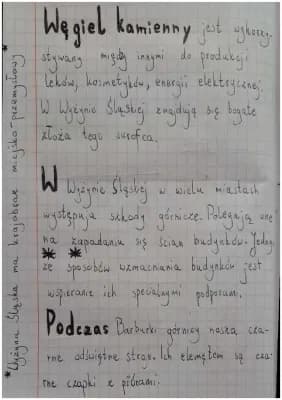 Węgiel kamienny jest wykorzy-
stywany między innymi do produkcji
leków, kosmetyków, energii elektrycznej.
W Wyżynie Śląskiej znajdują się bogate
złoża tego surowca.
W Wyżynie Śląskiej w wielu miastach
występują szkody górnicze. Polegają one
na zapadaniu się ścian budynków. Jedny
ze sposobów wzmacniania budynków jest
wspieranie ich specjalnymi podporami.
Podczas Barburki górnicy noszą cza-
rne odświętne stroje. Ich elemętem są cza-
rne czapki z piórami.
*Wyżyna Śląska ma krajobraz miejsko-przemysłowy*